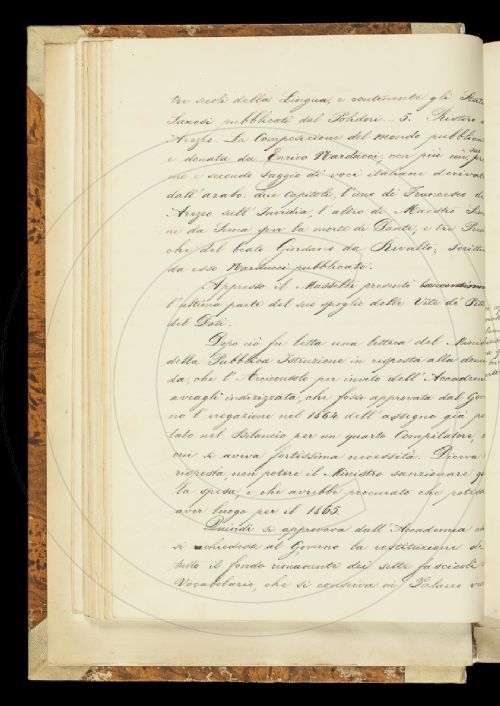 tre secoli della Lingua, e contenente gli Statu
Sanesi pubblicati dal Polidori. 5. Ristoro
Arezzo. La Composizione del mondo pubblica
e donata da Enrico Narducci, con più un suo pri
mo e secondo Saggio di voci italiane derivat
dall'arabo: due Capitoli, l'uno di Francesco d
Arezzo sull'Invidia, l'altro di Maestro Simo
ne da Siena per la morte di Dante, e tre Pred
che del beato Giordano da Rivalto, scritte
da esso Narducci pubblicate.
Appresso il Masselli presentò
l'ultima parte del suo spoglio delle Vite de' Pitt
del Dati.
Dopo ciò fu letta una lettera del Minis
della Pubblica Istruzione in risposta alla doman
da, che l'Arciconsolo per invito dell'Accadem
aveagli indirizzata, che fosse approvata dal Gove
no l'erogazione nel 1864 dell'assegno già po
tato nel Bilancio per un quarto Compilatore,
cui si aveva fortissima necessità. Diceva
risposta, non potere il Ministro sanzionare
la spesa, e che avrebbe procurato che potess
aver luogo per il 1865.
Quindi si approvava dall'Accademia ch
si chiedesse al Governo la restituzione de
tutto il fondo rimanente dei sette fascicoli
Vocabolario, che si conserva in Palazzo